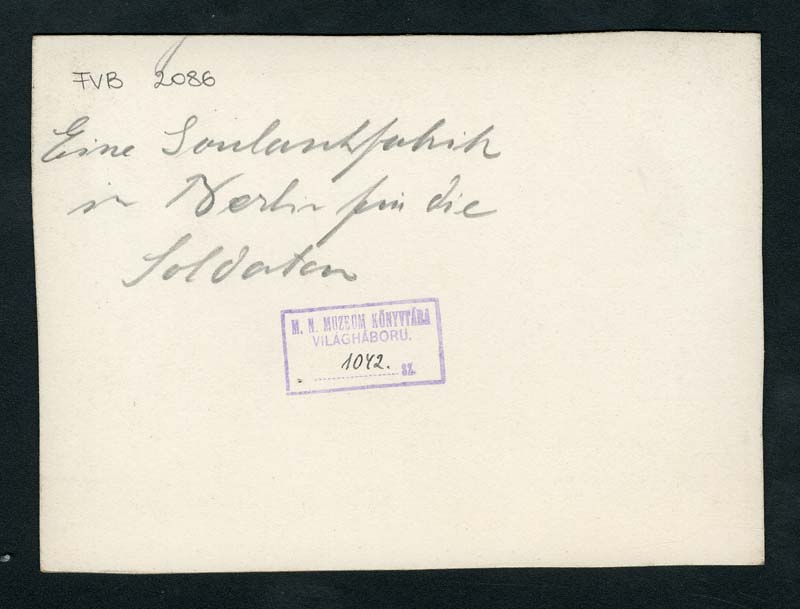 FVB 2086
Eine
in Berlin für die
Soldaten
M. N. MUZEUM KÖNYVTÁRA
VILÁGHÁBORU.
1042. SZ.